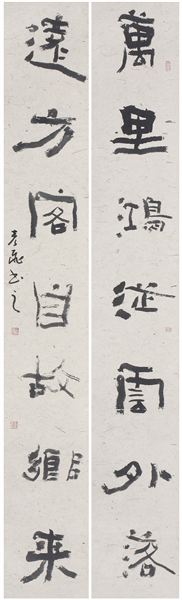 萬里鴻從雲外落
遠方客自故鄉來